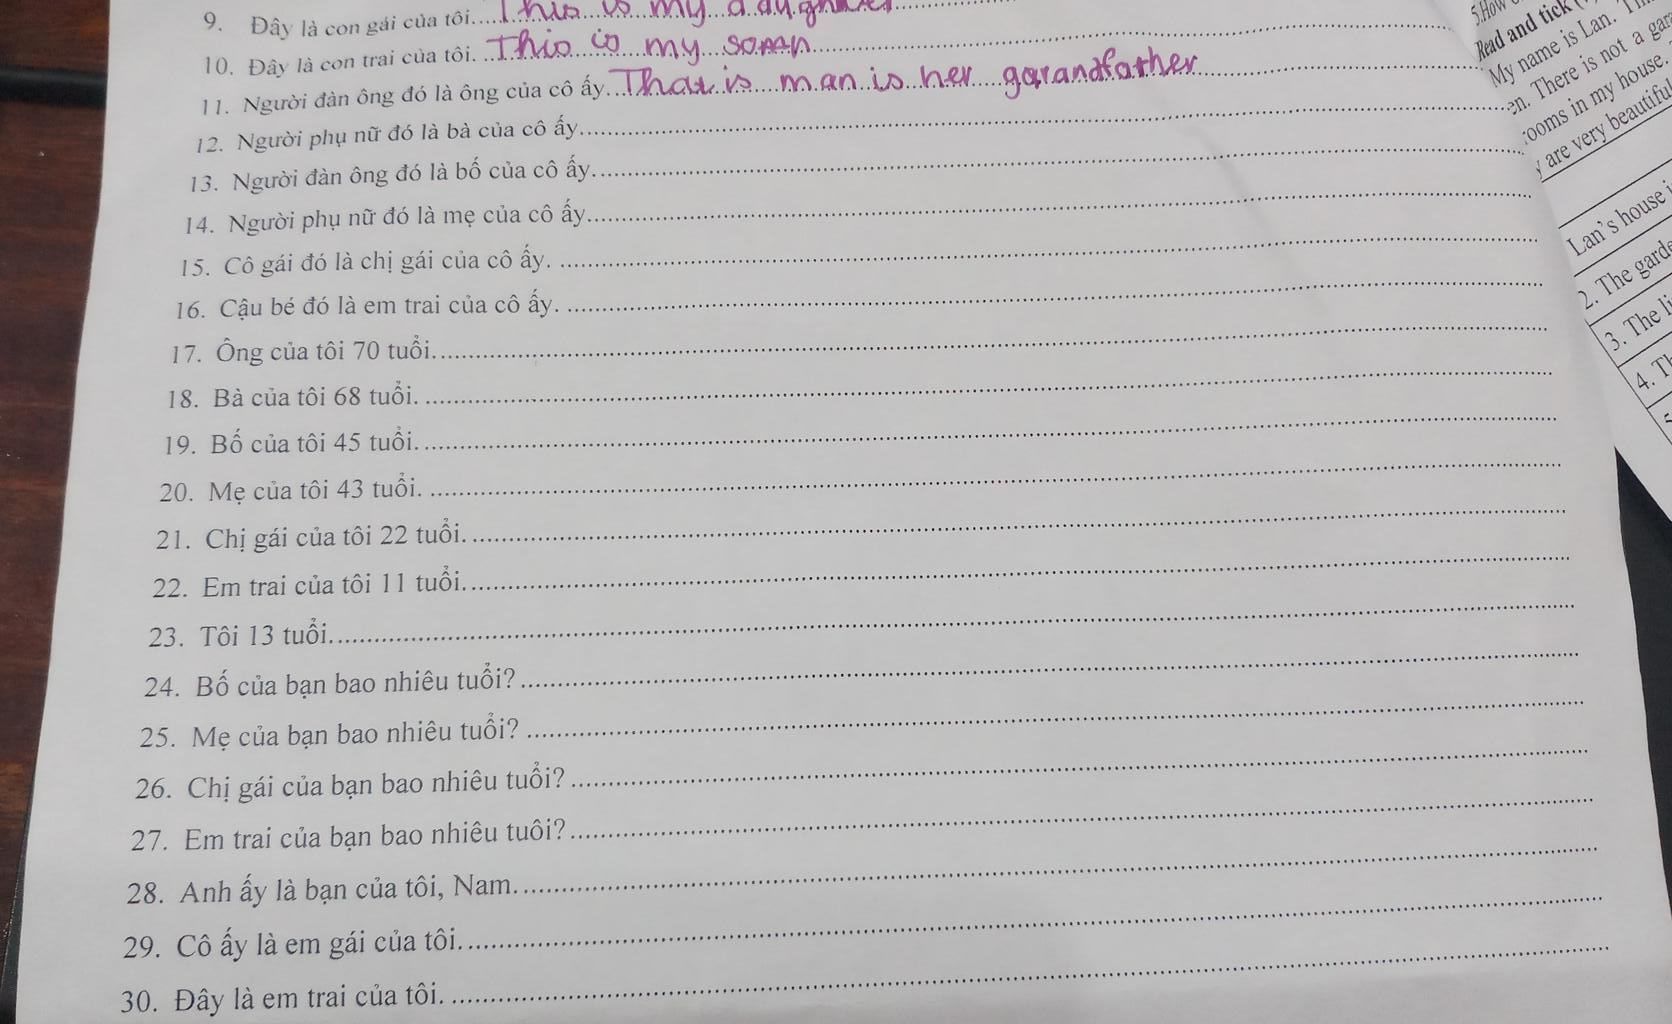 9. Đây là con gái của tôi....This is my daughter
10. Đây là con trai của tôi. ...This is my soman
11. Người đàn ông đó là ông của cô ấy...That is man is her garandfather
12. Người phụ nữ đó là bà của cô ấy.
13. Người đàn ông đó là bố của cô ấy.
14. Người phụ nữ đó là mẹ của cô ấy.
15. Cô gái đó là chị gái của cô ấy.
16. Cậu bé đó là em trai của cô ấy.
17. Ông của tôi 70 tuổi.
18. Bà của tôi 68 tuổi.
19. Bố của tôi 45 tuổi.
20. Mẹ của tôi 43 tuổi.
21. Chị gái của tôi 22 tuổi.
22. Em trai của tôi 11 tuổi.
23. Tôi 13 tuổi.
24. Bố của bạn bao nhiêu tuổi?
25. Mẹ của bạn bao nhiêu tuổi?
26. Chị gái của bạn bao nhiêu tuổi?
27. Em trai của bạn bao nhiêu tuôi?
28. Anh ấy là bạn của tôi, Nam.
29. Cô ấy là em gái của tôi.
30. Đây là em trai của tôi.
5.How
Read and tick (
My name is Lan.
en. There is not a gar
rooms in my house.
y are very beautiful
Lan's house i
2. The garde
3. The li
4. Th